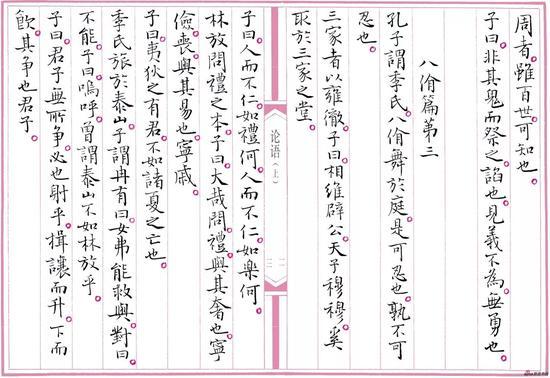 周者雖百世可知也
子曰非其鬼而祭之諂也見義不為無勇也
八佾篇第三
孔子謂季氏八佾舞於庭是可忍也孰不可
忍也
三家者以雍徹子曰相維辟公天子穆穆奚
取於三家之堂
论语(上)
三 二
子曰人而不仁如禮何人而不仁如樂何
林放問禮之本子曰大哉問禮與其奢也寧
儉喪與其易也寧戚
子曰夷狄之有君不如諸夏之亡也
季氏旅於泰山子謂冉有曰女弗能救與對曰
不能子曰嗚呼曾謂泰山不如林放乎
子曰君子無所争必也射乎揖讓而升下而
飲其争也君子